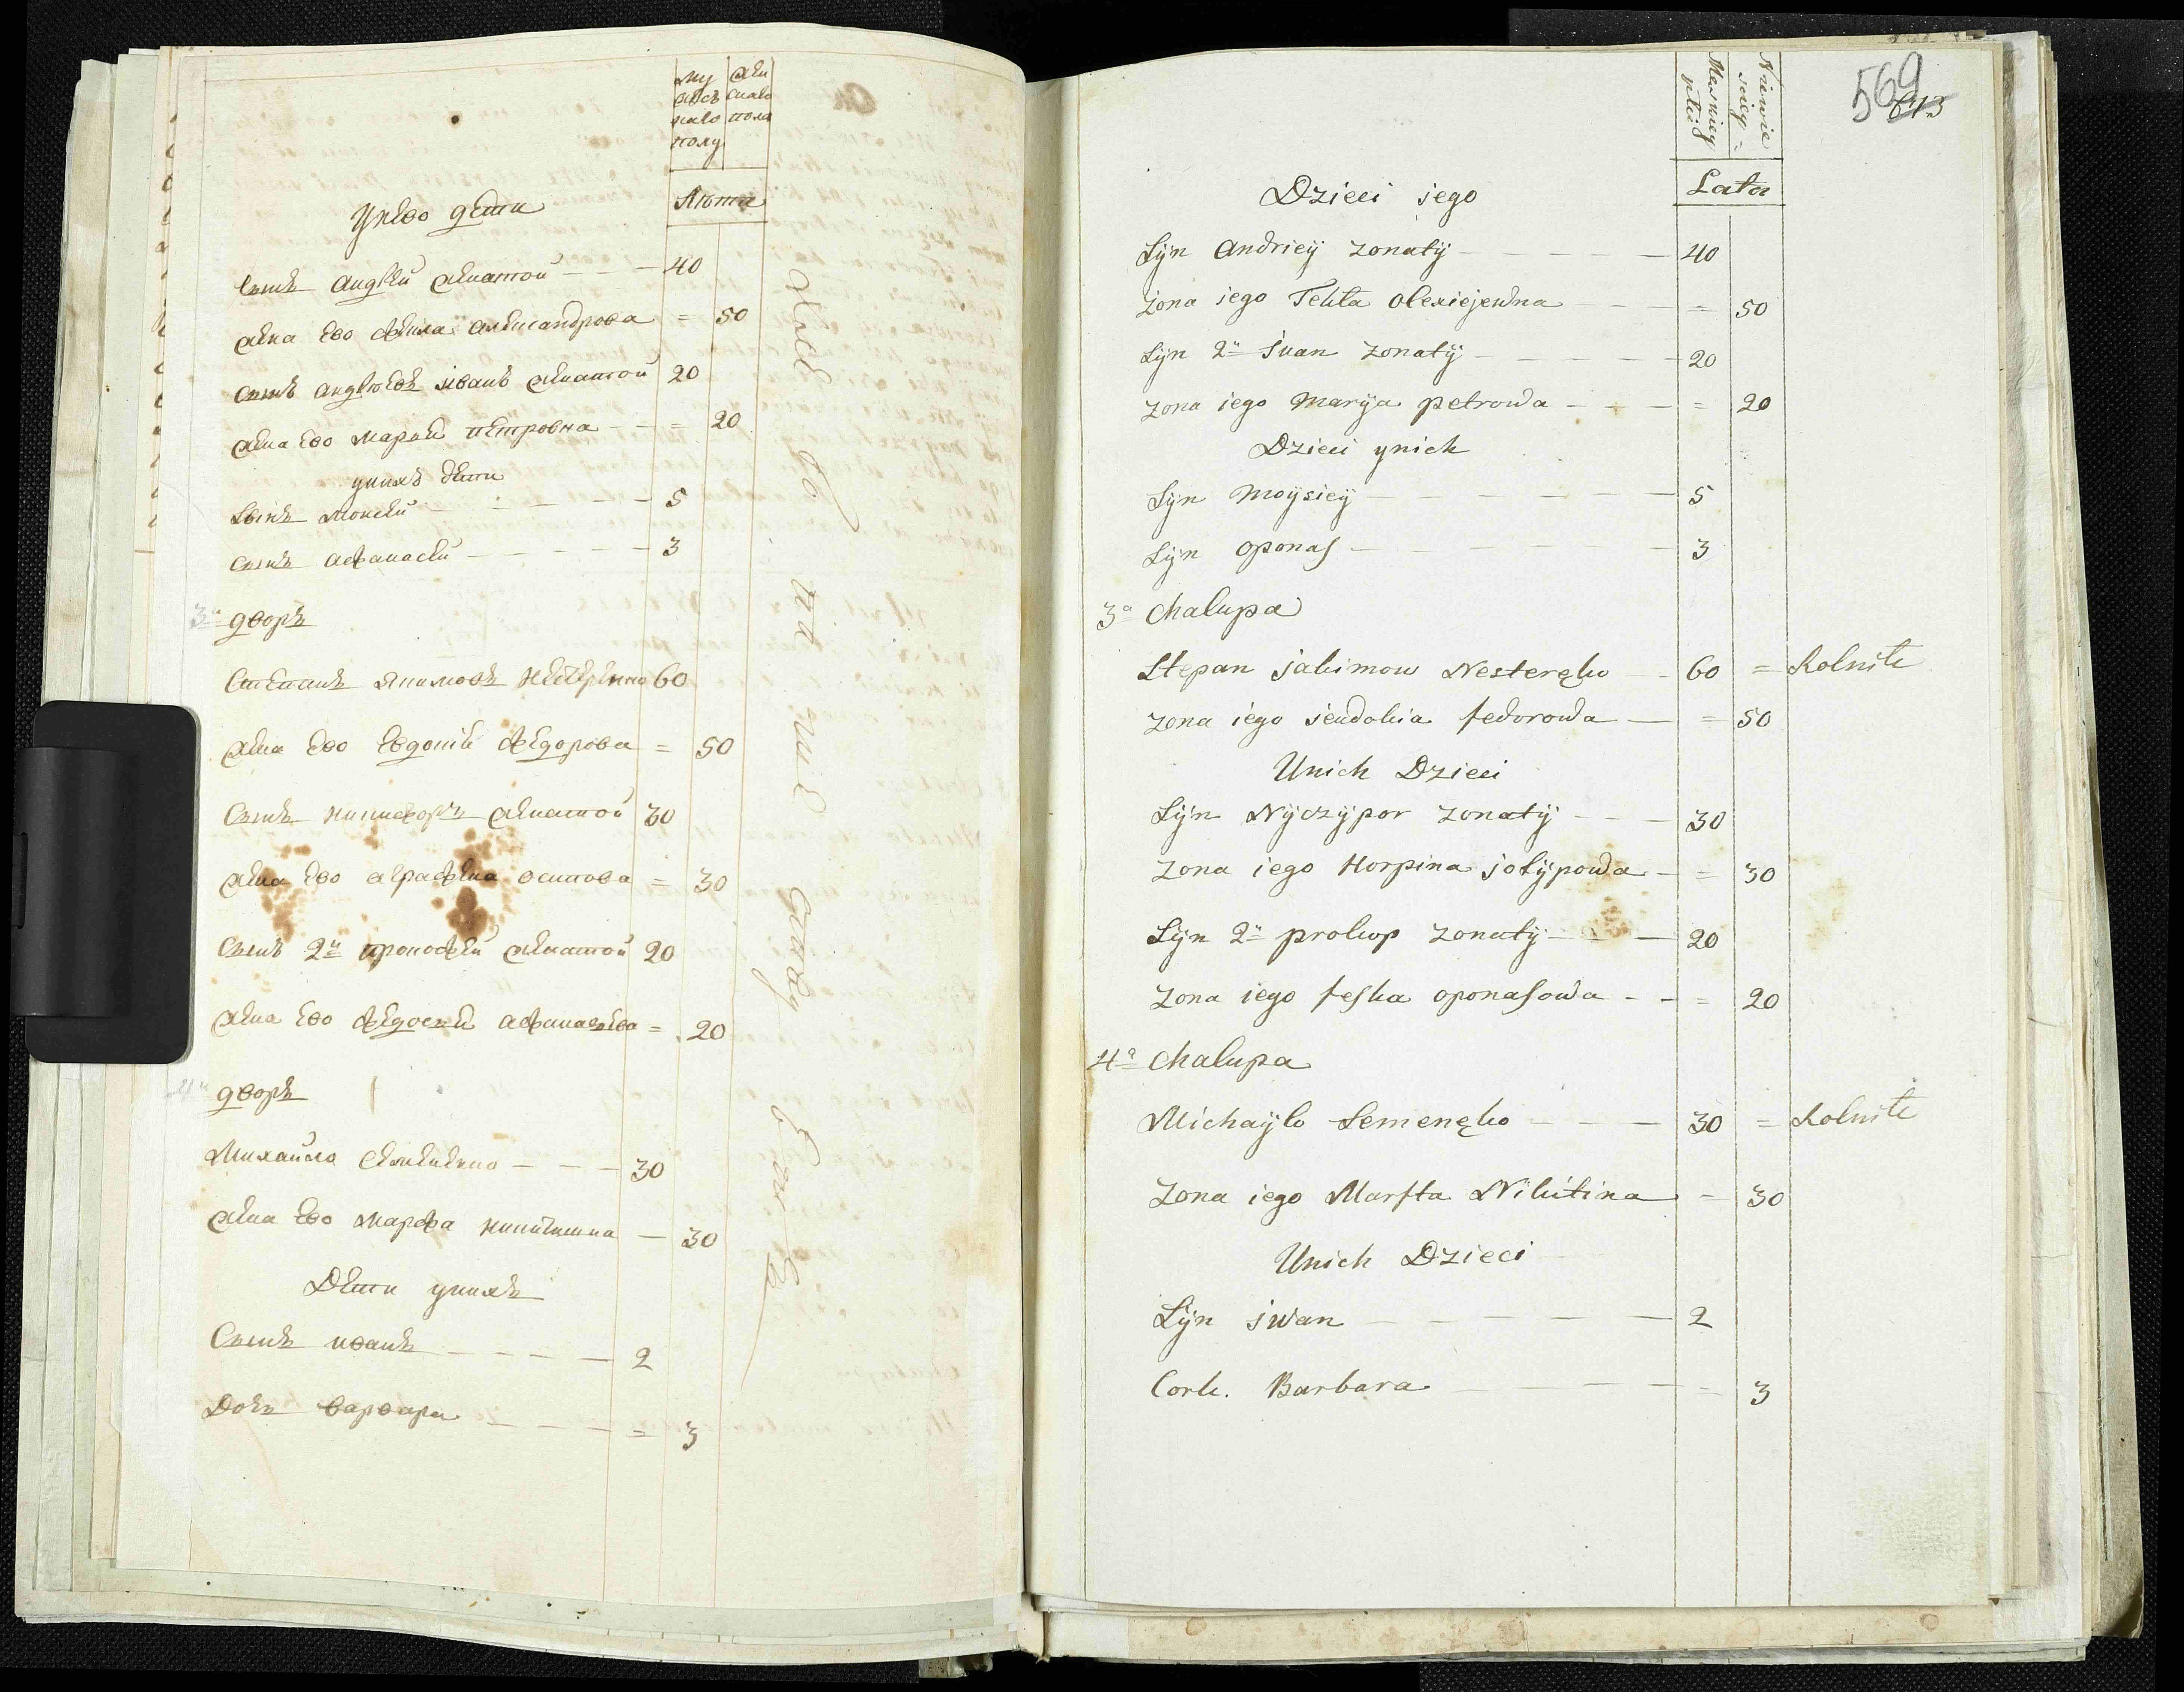 му
жеск
каво
полу
жен
скаво
пола
Лѣта
у нево дети
сынъ андрей женатой - - - 40
жена ево фекла алексапдрова = 50
сынъ андрѣевъ иванъ женатой 20
жена ево марья петровна - - = 20
у нихъ дети
сынъ моисей - - - - - 5
сынъ афанасей - - - - - 3
3й дворъ
Степанъ якимовъ нестеренко 60
жена ево евдокия федорова = 50
сынъ никифоръ женатой 30
жена ево аграфена осипова = 30
сынъ 2й прокофей женатой 20
жена ево федосья афанасьева = 20
4й дворъ
Михайла семененко - - - 30
жена ево марфа никитишна - 30
Дети у нихъ
Сынъ иванъ - - - - 2
Дочь варвара - - - - = 3
569
613
Męskiey
płci
Niewie
sciey =
Lata
Dzieci jego
Syn Andriey zonaty - - - - - 40
zona iego Tekla Olexiejewna - - = 50
Syn 2й Iwan zonaty - - - - - 20
zona iego Marya petrowa - - - = 20
Dzieci ynich
Syn Moysiey - - - - - 5
Syn oponas - - - - - 3
3a Chalupa
Stepan Jakimow Nesteręko - - 60 = Rolnik
zona iego jewdokia fedorowa - = 50
Unich Dzieci
Syn Nyczypor zonaty - - - 30
zona iego Horpina josypowa - = 30
Syn 2й prokop zonaty - - - 20
zona iego feska oponasowa - - = 20
4a Chalupa
Michayło Semenęko - - - 30 = Rolnik
zona iego Marfta Nikitina - 30
Unich Dzieci
Syn iwan - - - - - 2
Cork. Barbara - - - - = 3